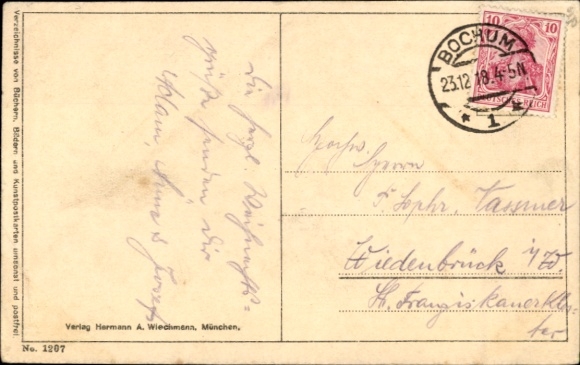 Die herzl. Weihnachts-
grüße senden Dir
Hochw. Herrn
Wiedenbrück i/W.
St. Franziskanerklos-
ter
10 10
DEUTSCHES REICH
BOCHUM
23.12.18.4-5N
* 1 *
Verzeichnisse von Büchern, Bildern und Kunstpostkarten umsonst und postfrei.
Verlag Hermann A. Wiechmann, München.
No. 1297